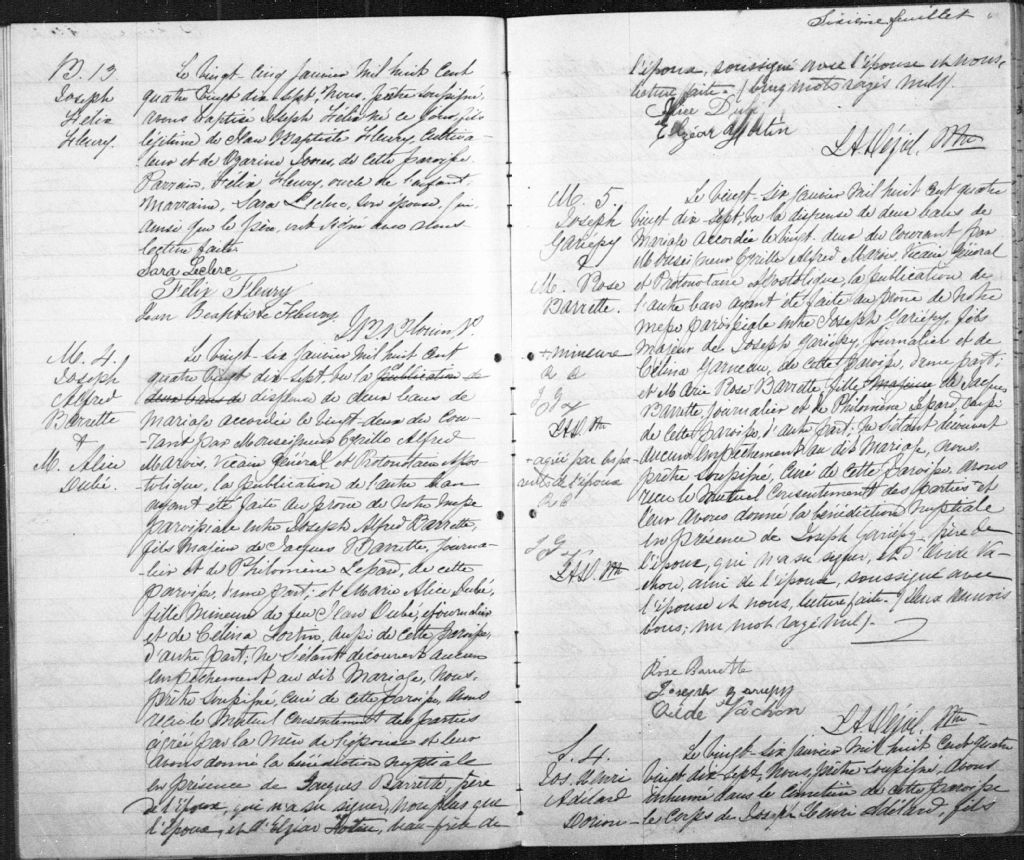 B. 13.
Joseph
Félix
Fleury.
Le vingt-cinq Janvier mil huit cent
quatre vingt dix sept, nous, prêtre soussigné,
avons baptisé Joseph Félix né ce jour, fils
légitime de Jean Baptiste Fleury, cultiva-
teur et de de cette paroisse.
Parrain, Félix Fleury, oncle de l'enfant,
Marraine, Sara Leclerc, son épouse, qui,
ainsi que le père, ont signé avec nous.
lecture faite
Sara Leclerc
Félix Fleury
Jean Beaptiste Fleury.
M. 4.
Joseph
Alfred
Barrette
&
M. Alice
Dubé.
Le vingt-six Janvier mil huit cent
quatre vingt dix sept, vu la publication de
deux bans de dispense de deux bans de
mariage accordée le vingt-deux du cou-
rant par Monseigneur Cyrille Alfred
Marois, Vicaire Général et Protonotaire Apos-
tolique, la publication de l'autre ban
ayant été faite au prône de notre messe
paroissiale entre Joseph Alfred Barrette,
fils majeur de Jacques Barrette, journa-
lier et de Philomène Lepard, de cette
paroisse, d'une part; et Marie Alice Dubé,
fille mineure de feu Jean Dubé, journalier
et de Celina Fortin, aussi de cette paroisse,
d'autre part; ne s'étant découvert aucun
empêchement au dit mariage, nous,
prêtre soussigné, curé de cette paroisse, avons
reçu le mutuel consentement des parties
agréé par la mère de l'épouse et leur
avons donné la bénédiction nuptiale
en présence de Jacques Barrette, père
de l'époux, qui n'a su signer, non plus que
l'épouse, et d'Elzéar beau-frère de
Sixième feuillet
l'époux, soussigné avec l'épouse et nous,
lecture faite. (cinq mots rayés nuls).
Alice Dubé
Elzéar
M. 5.
Joseph
Gariépy
&
M. Rose
Barrette.
Le vingt-six Janvier mil huit cent quatre
vingt dix sept, vu la dispense de deux bans de
mariage accordée le vingt-deux du courant par
Monseigneur Cyrille Alfred Marois, Vicaire Général
et Protonotaire Apostolique, la publication de
l'autre ban ayant été faite au prône de notre
messe paroissiale entre Joseph Gariépy, fils
majeur de Joseph Gariépy, journalier et de
Célina Garneau, de cette paroisse, d'une part;
et Marie Rose Barrette, fille majeure de Jacques
Barrette, journalier et de Philomène Lepard, aussi
de cette paroisse, d'autre part; ne s'étant découvert
aucun empêchement au dit mariage, nous,
prêtre soussigné, curé de cette paroisse, avons
reçu le mutuel consentement des parties et
leur avons donné la bénédiction nuptiale
en présence de Joseph Gariépy, père de
l'époux, qui n'a su signer, et d'Ovide Va-
chon, ami de l'époux, soussigné avec
l'épouse et nous, lecture faite. (deux renvois
bons; un mot rayé nul).
+ mineure
+ agréé par les pa-
rents de l'épouse
J G
Rose Barrette
Joseph gariepy
Ovide Vachon
S. 4.
Jos. Henri
Adélard
Dorion
Le vingt-six Janvier mil huit cent quatre
vingt dix sept, nous, prêtre soussigné, avons
inhumé dans le cimetière de cette paroisse
le corps de Joseph Henri Adélard, fils